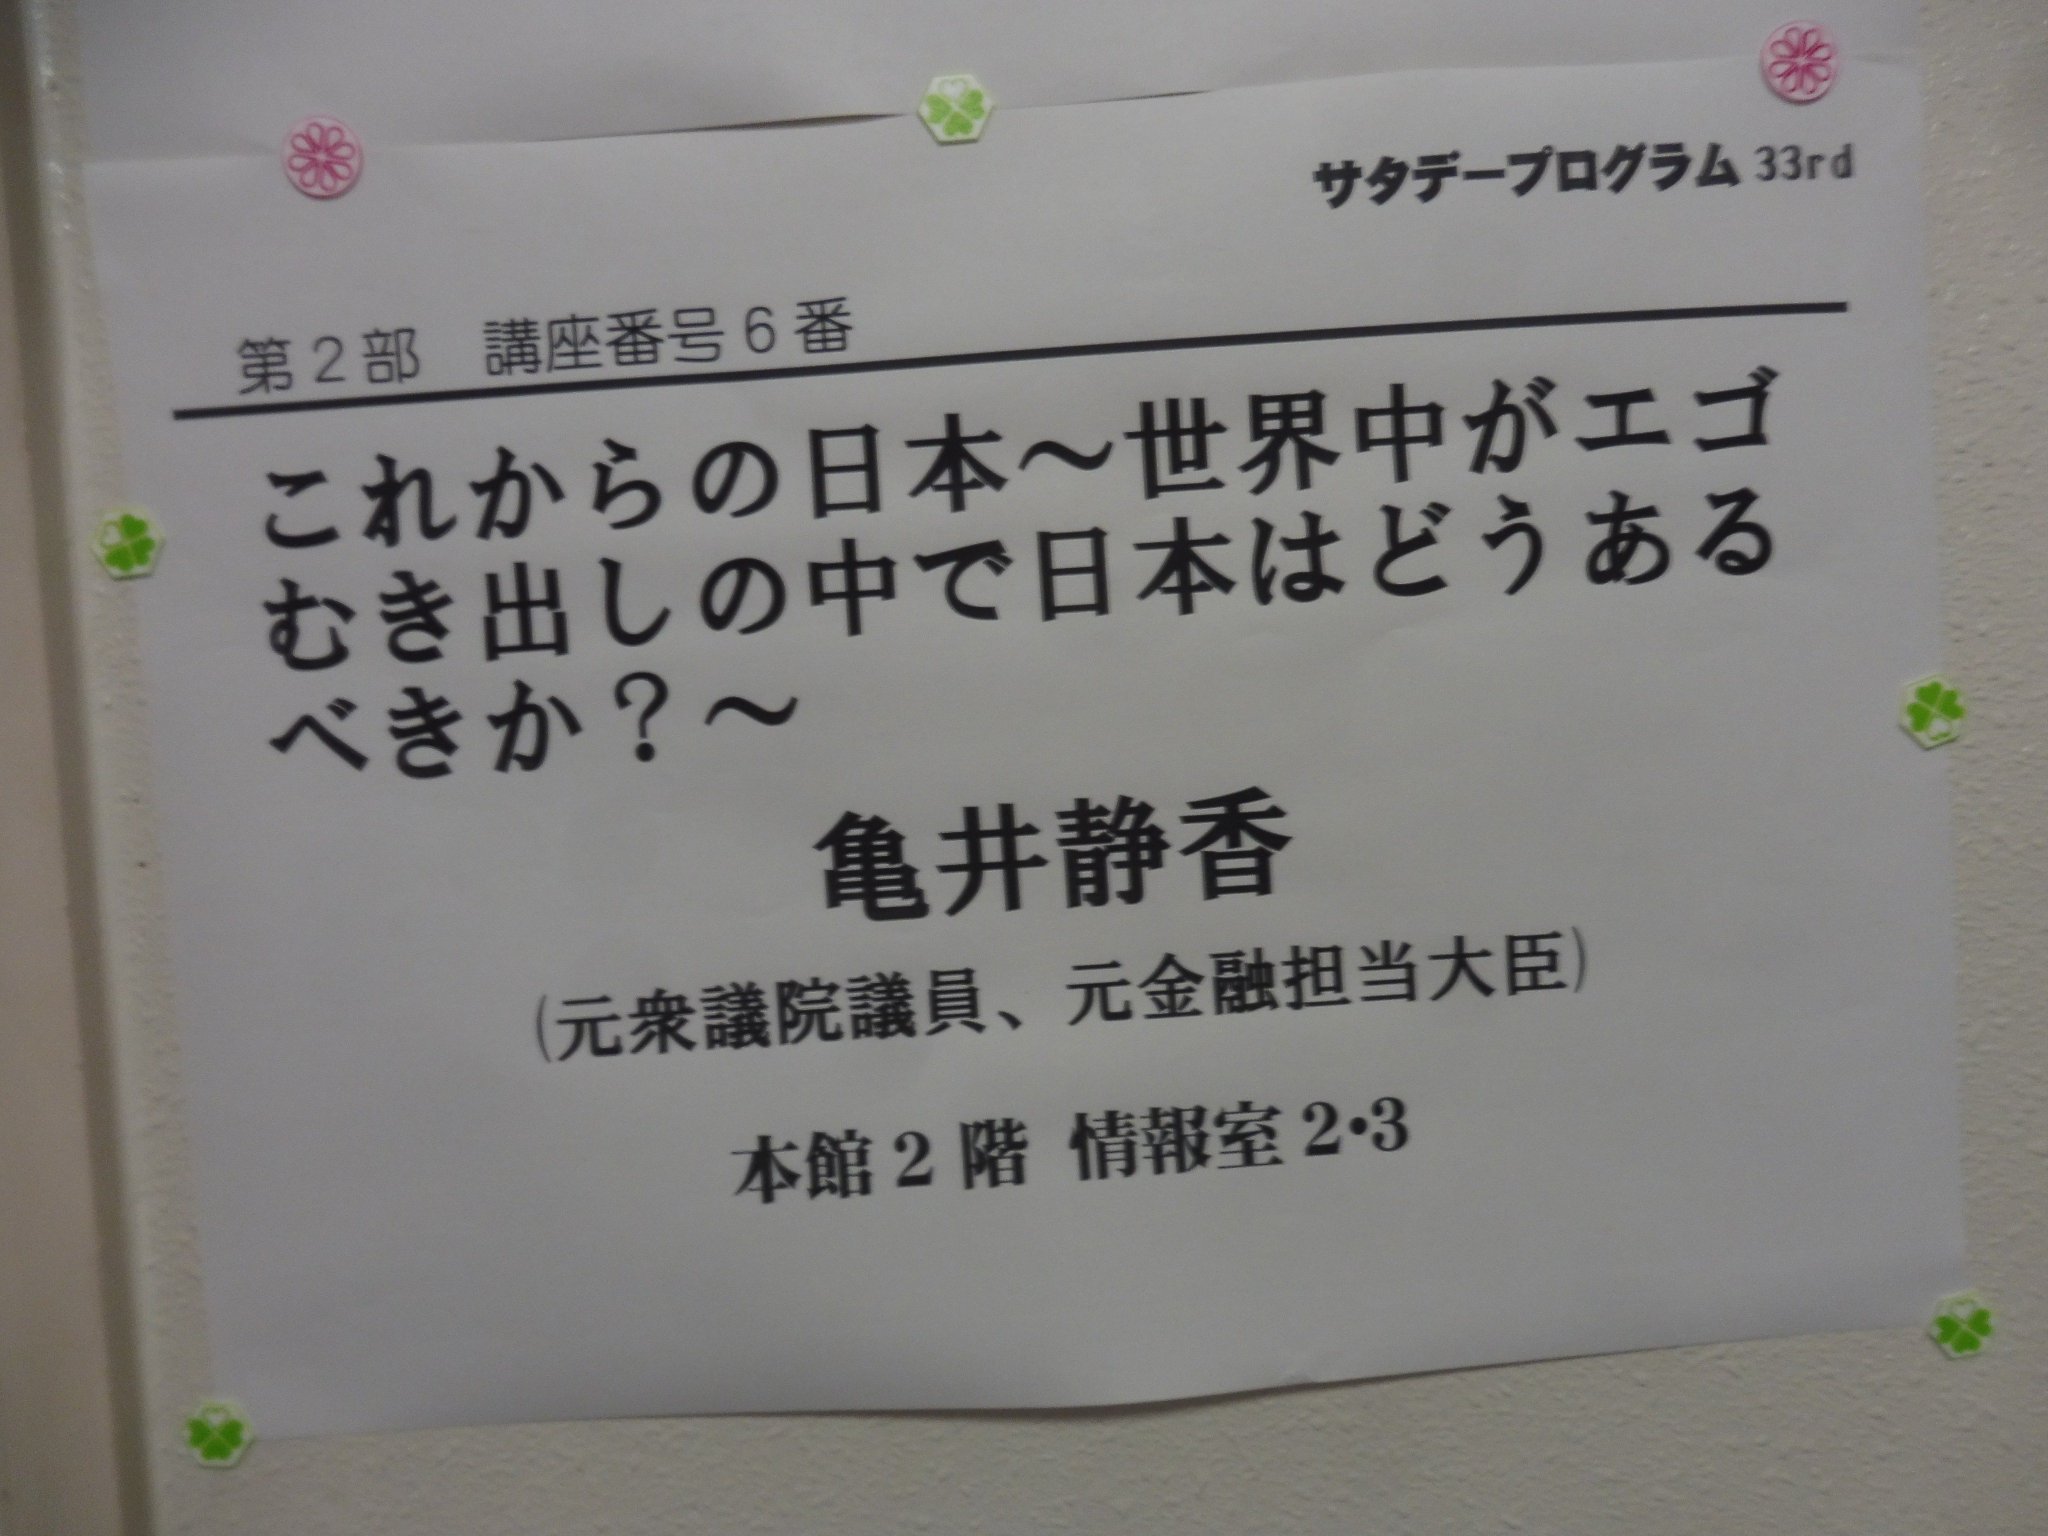 サタデープログラム 33rd
第2部　講座番号6番
これからの日本～世界中がエゴ
むき出しの中で日本はどうある
べきか？～
亀井静香
(元衆議院議員、元金融担当大臣)
本館2階 情報室2・3